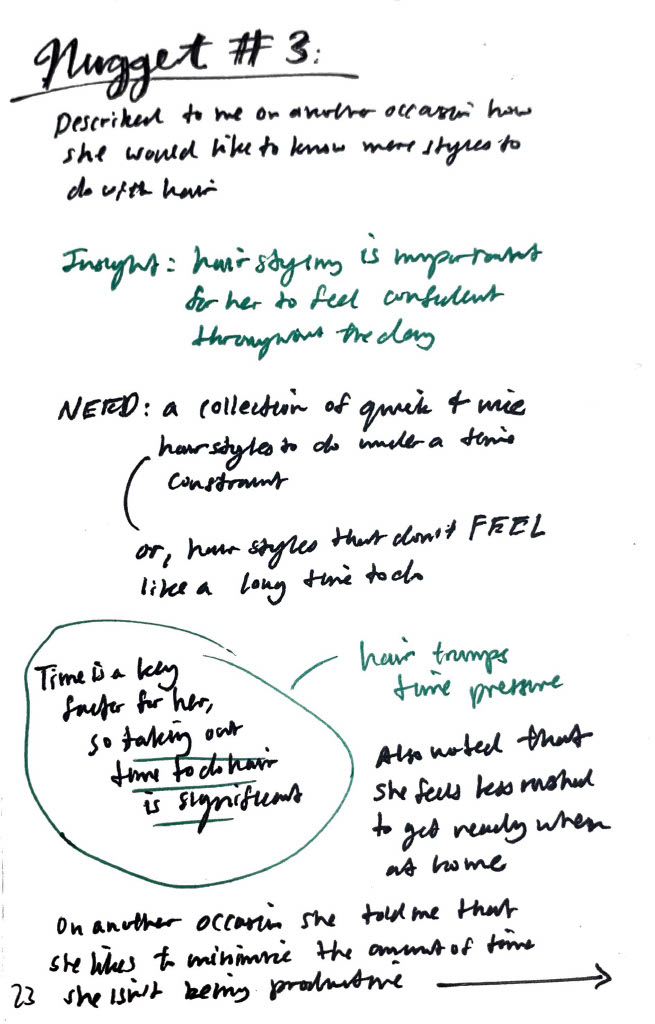 Nugget #3:
Described to me on another occasion how
she would like to know more styles to
do with hair
Insight: hair styling is important
for her to feel confident
throughout the day
NEED: a collection of quick + nice
hairstyles to do under a time
constraint
or, hair styles that don't FEEL
like a long time to do
Time is a key
factor for her,
so taking out
time to do hair
is significant
hair trumps
time pressure
Also noted that
she feels less rushed
to get ready when
at home
On another occasion she told me that
she likes to minimize the amount of time
she isn't being productive
23